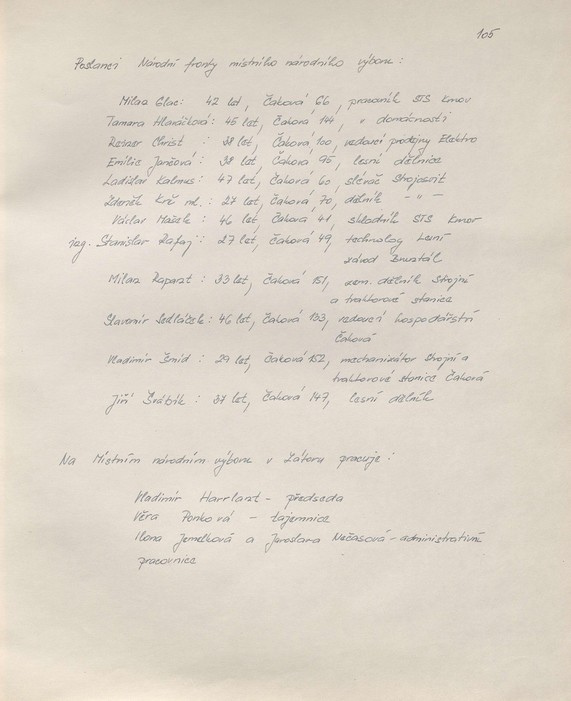 105
Poslanci Národní fronty místního národního výboru :
Milan Glac : 42 let, Čaková 66, pracovník STS Krnov
Tamara Hlaváčková : 45 let, Čaková 144, v domácnosti
Reiner Christ : 38 let, Čaková 100, vedoucí prodejny Elektro
Emilie Jančová : 38 let, Čaková 95, lesní dělnice
Ladislav Kalmus : 47 let, Čaková 60, slévač Strojosvit
Zdeněk Krč ml. : 27 let, Čaková 70, dělník -"-
Václav Mašek : 46 let, Čaková 41, skladník STS Krnov
ing. Stanislav Rafaj : 27 let, Čaková 49, technolog Lesní
závod Bruntál
Milan Raparat : 33 let, Čaková 151, zem. dělník Strojní
a traktorové stanice
Slavomír Sedláček : 46 let, Čaková 133, vedoucí hospodářství
Čaková
Vladimír Šmíd : 29 let, Čaková 152, mechanizátor Strojní a
traktorové stanice Čaková
Jiří Šrábik : 37 let, Čaková 147, lesní dělník
Na Místním národním výboru v Zátoru pracuje :
Vladimír Harrlant - předseda
Věra Ponková - tajemnice
Ilona Jemelková a Jaroslava Nečasová - administrativní
pracovnice